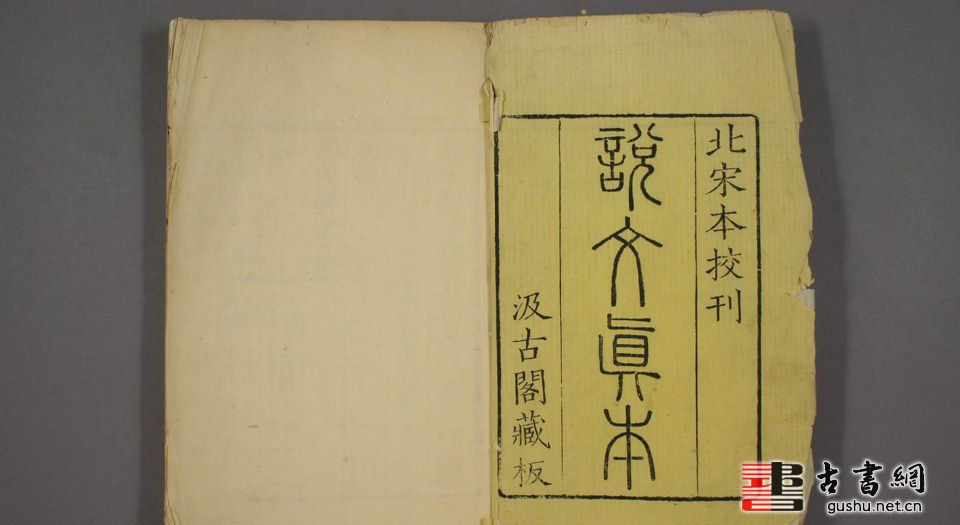 北宋本挍刊
說文眞本
汲古閣藏板
古書網
gushu.net.cn